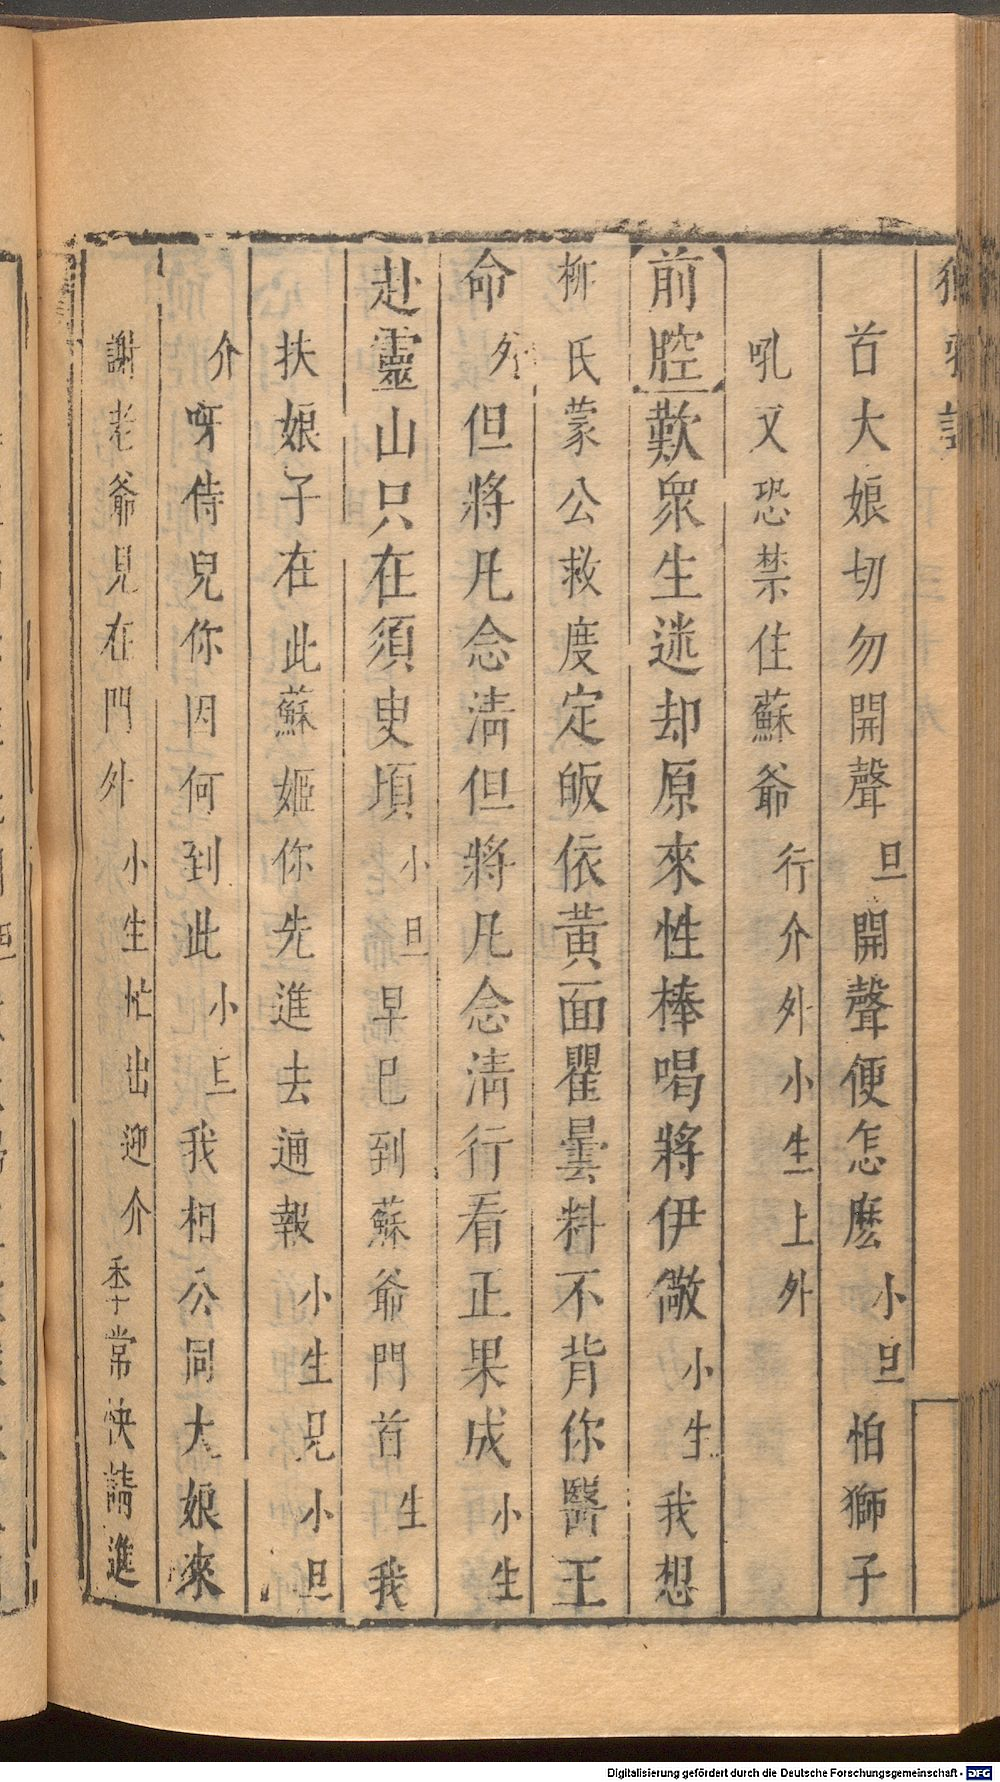 首大娘切勿開聲旦開聲便怎麽小旦怕獅子
吼又恐禁住蘇爺行介外小生上外
前腔歎衆生迷却原來性棒喝將伊儆小生我想
柳氏蒙公救度定皈依黃面瞿曇料不背你醫王
命外但將凡念淸但將凡念淸行看正果成小生
赴靈山只在須臾頃小旦早已到蘇爺門首生我
扶娘子在此蘇姬你先進去通報小生見小旦
介呀侍兒你因何到此小旦我相公同大娘來
謝老爺見在門外小生忙出迎介季常快請進
Digitalisierung gefördert durch die Deutsche Forschungsgemeinschaft - DFG